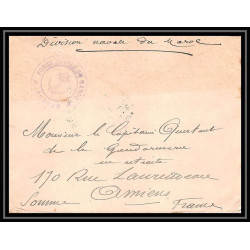 Division navale du Maroc
Monsieur le Capitaine
de la Gendarmerie
en retraite
170 Rue
Amiens
Somme France